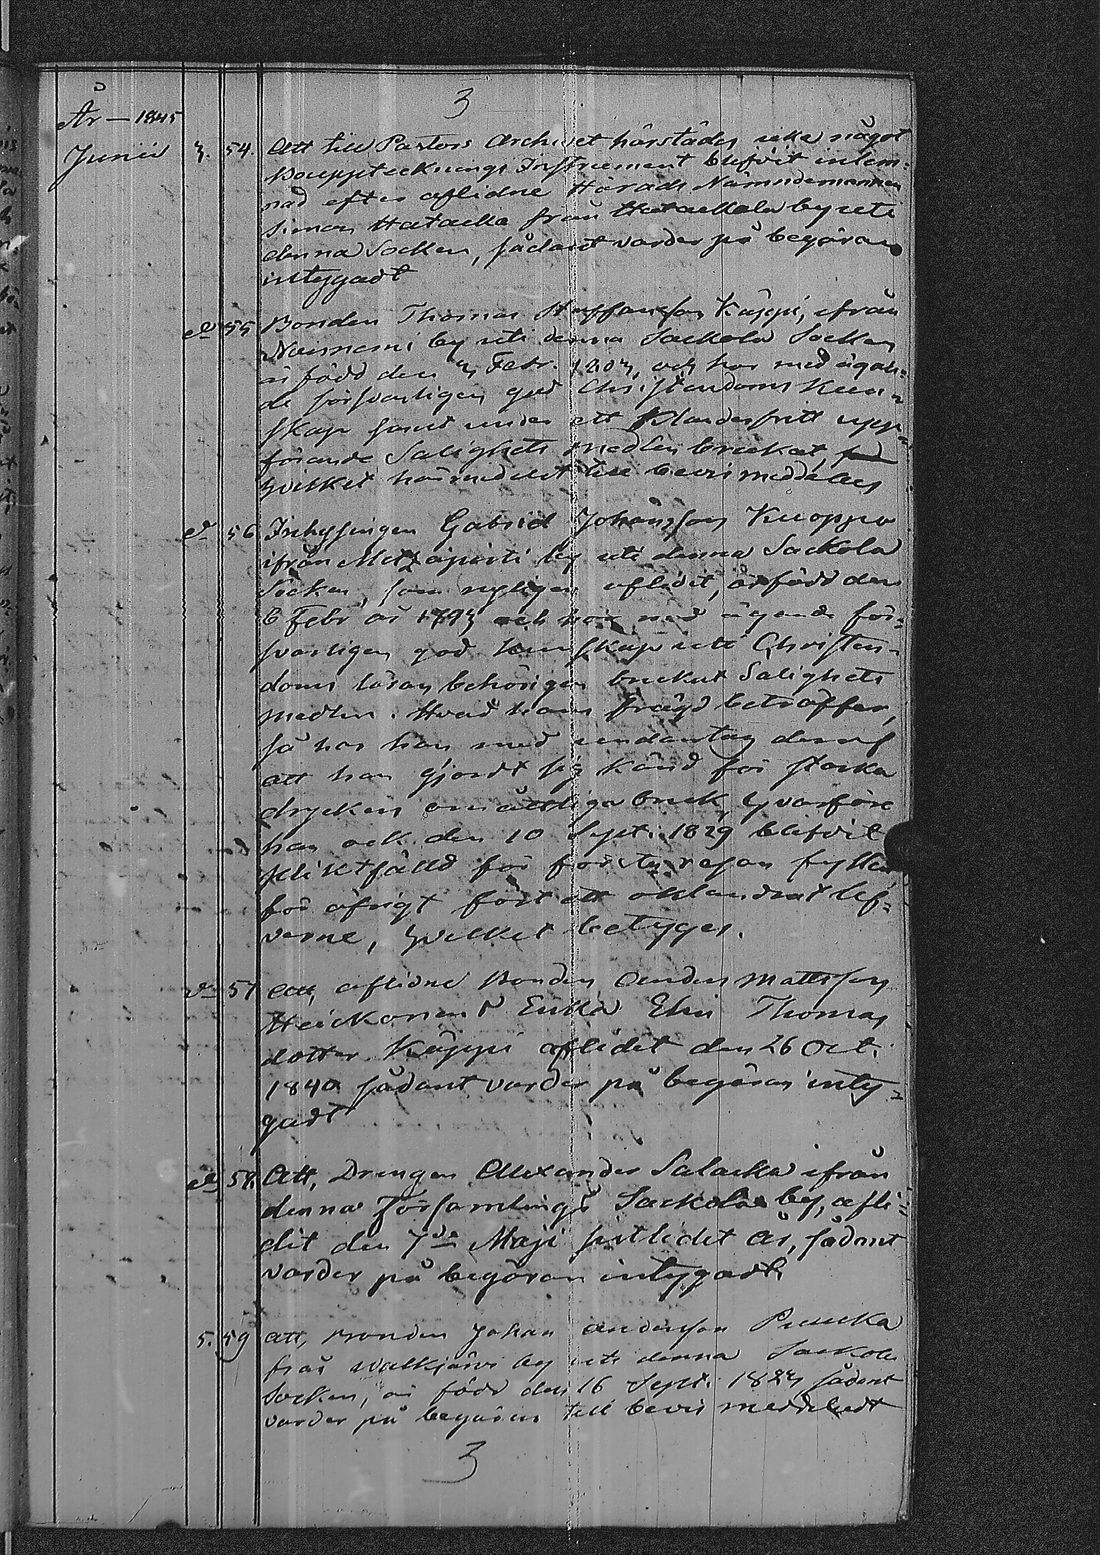 3
År — 1845
Junii 3. 54. Att till Pastors Archivet härstädes icke något
Boupptecknings Instrument blifvit inlem-
nad efter aflidne Härads Nämndemannen
Simon Hatacka från Hatackala by uti
denna Socken, sådant varder på begäran
intygadt
do 55 Bonden Thomas Staffansson Käppi, ifrån
by uti denna Sackola Socken
är född den Febr. och har med ägan-
de försvarligen god Christendoms Kun-
skap samt under ett Klanderfritt upp-
förande Salighets medlen brukat,
hvilket härmedelst till bevis meddeles
do 56 Inhysingen Gabriel Johansson Kuoppa
ifrån by uti denna Sackola
Socken, som nyligen aflidit, är född den
6 Febr år 1793 och har med ägande för-
svarligen god kunskap uti Christen-
doms läran behörigen brukat Salighets
medlen. Hvad hans frägd beträffar,
så har han med undantag deraf
att han gjordt sig känd för starka
dryckers omåttliga bruk, hvarföre
han ock den 10 Sept. 1829 blifvit
pliktfälld för första resan fylleri
för öfrigt fört ett oklandrat lef-
verne, hvilket betygas.
do 57 Att, aflidne Bonden Anders Mattsson
Heickonens Enka Elin Thomas
dotter Käppi aflidit den 26 Oct.
1840 sådant varder på begäran inty-
gadt
do 58. Att, Drengen Alexander Salacka ifrån
denna Församlings Sackola by, afli-
dit den 7de Maji sistledit år, sådant
varder på begäran intygadt.
5. 59 Att, Bonden Johan Andersson Puucka
från Walkjärvi by uti denna Sackola
Socken, är född den 16 Sept. sådant
varder på begäran till bevis meddeladt
3